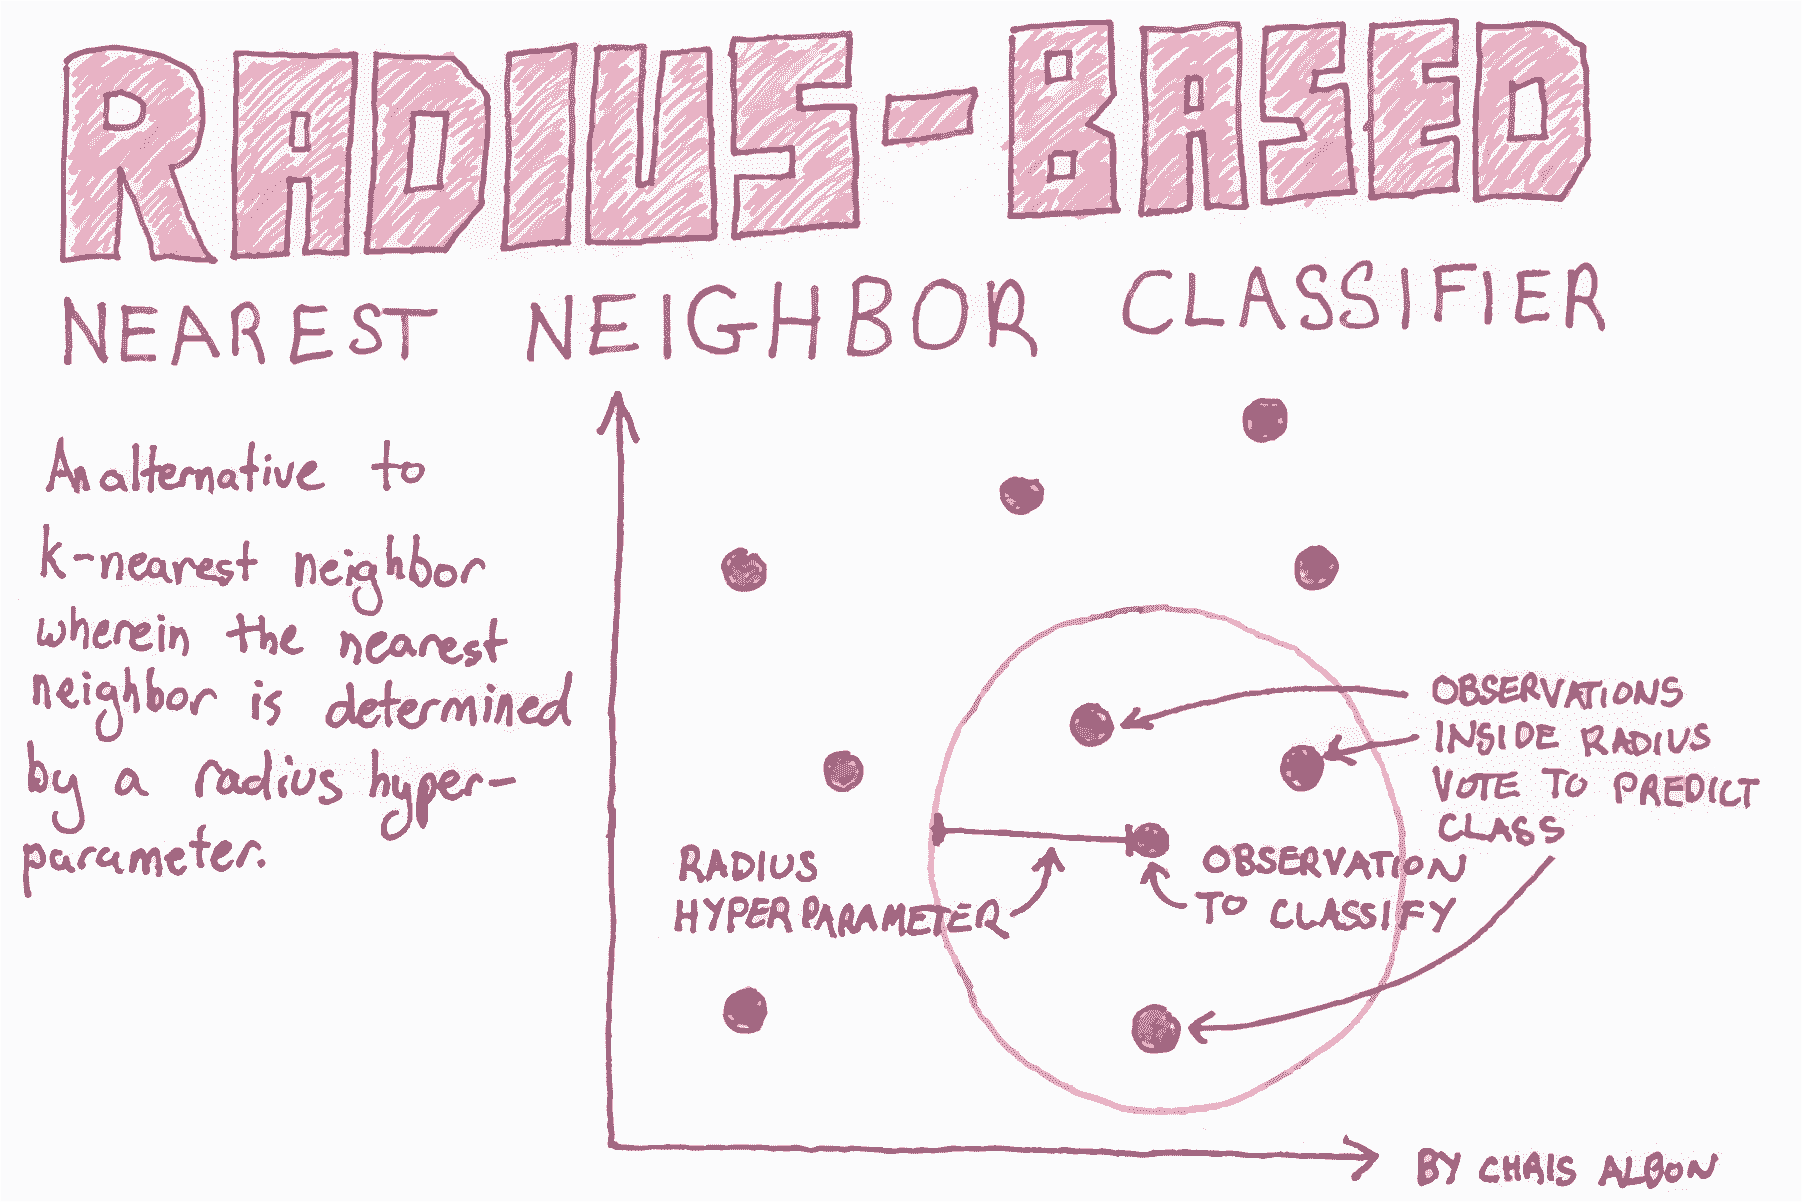 RADIUS-BASED
NEAREST NEIGHBOR CLASSIFIER
An alternative to
k-nearest neighbor
wherein the nearest
neighbor is determined
by a radius hyper-
parameter.
OBSERVATIONS
INSIDE RADIUS
VOTE TO PREDICT
CLASS
RADIUS
HYPERPARAMETER
OBSERVATION
TO CLASSIFY
BY CHRIS ALBON